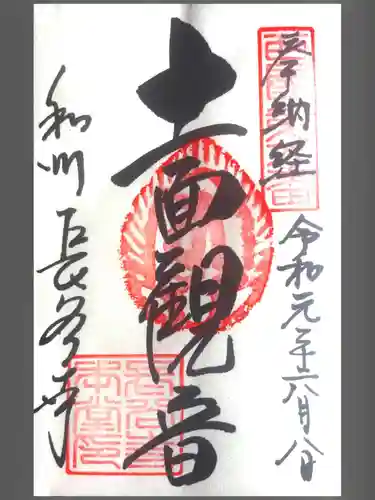 奉納経
令和元年六月八日
十一面観音
和州 長谷寺